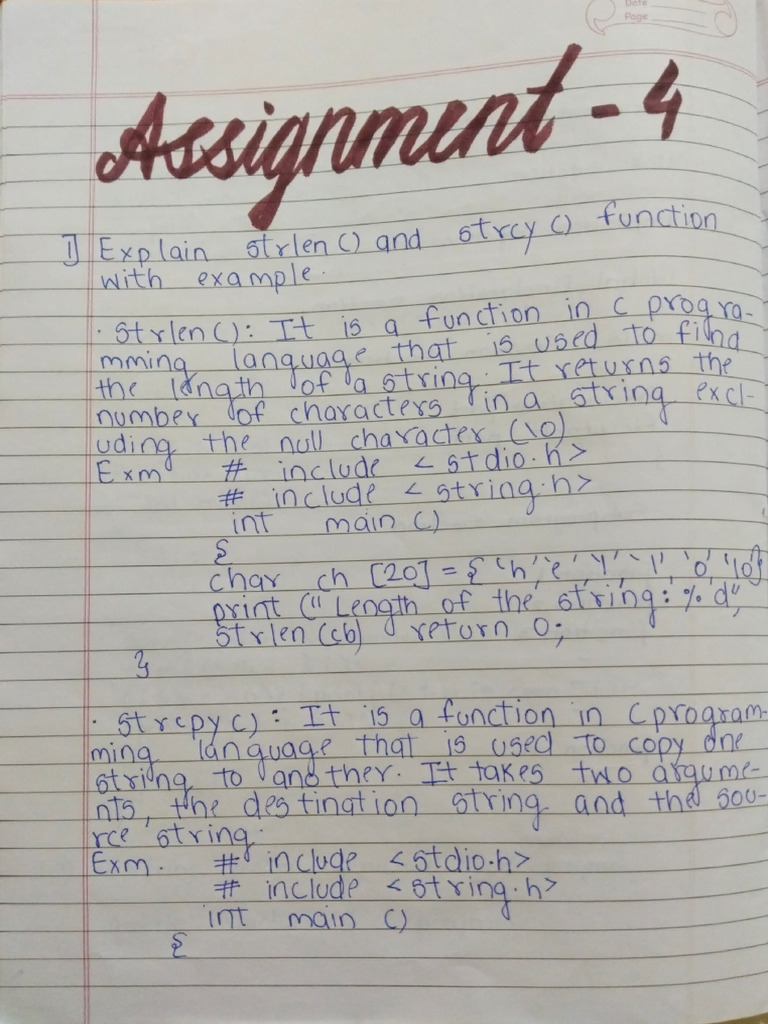 Date
Page
Assignment - 4
1] Explain strlen () and strcy () function
with example.
· Strlen (): It is a function in c progra-
mming language that is used to find
the length of a string. It returns the
number of characters in a string excl-
uding the null character (\0)
Exm # include < stdio.h>
# include < string.h>
int main ()
{
char ch [20] = { 'h', 'e', 'l', 'l', 'o', '\0'}
print (" Length of the string: % d",
strlen (cb) return 0;
}
· Strcpy (): It is a function in C program-
ming language that is used to copy one
string to another. It takes two argume-
nts, the destination string and the sou-
rce string.
Exm. # include <stdio.h>
# include <string.h>
int main ()
{